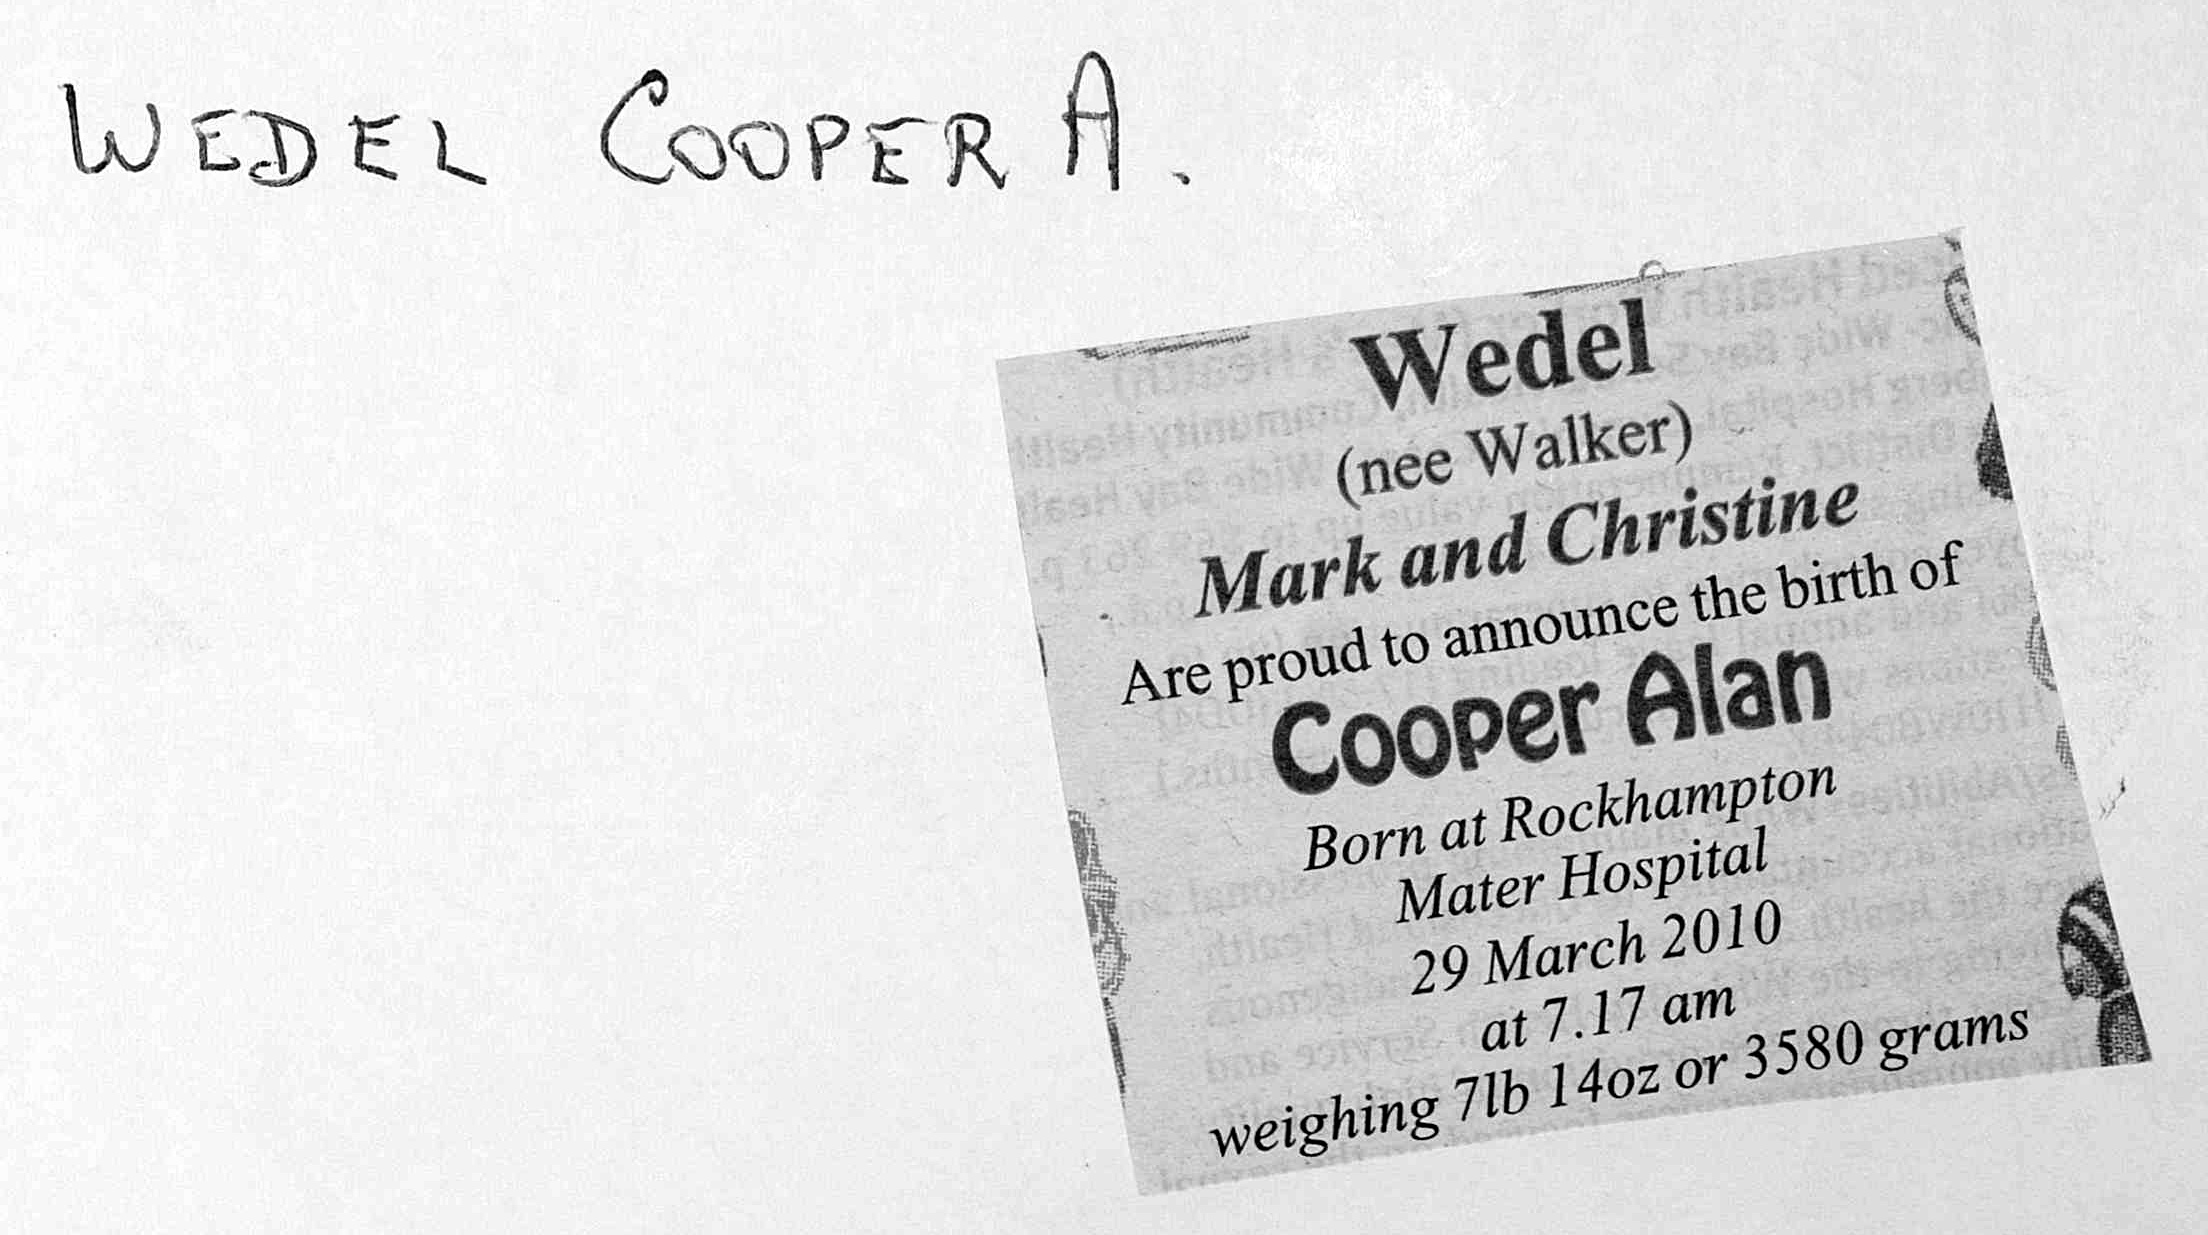 WEDEL COOPER A.
Wedel
(nee Walker)
Mark and Christine
Are proud to announce the birth of
Cooper Alan
Born at Rockhampton
Mater Hospital
29 March 2010
at 7.17 am
weighing 7lb 14oz or 3580 grams